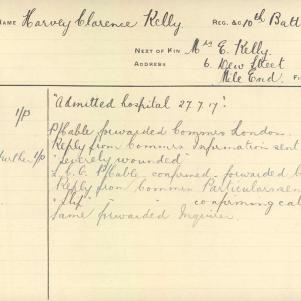 NAME Harvey Clarence Kelly. REG. &C 10th Batt
NEXT OF KIN Mrs E. Kelly.
ADDRESS 6. New Street
Mile End.
1/p "Admitted hospital 27.7.17".
P/Cable forwarded Commrs London.
Reply from Commrs Information sent
further 1/p "severely wounded"
P/Cable confirmed forwarded
Reply from Commrs Particulars sen
confirming ca
Same forwarded Inquirer